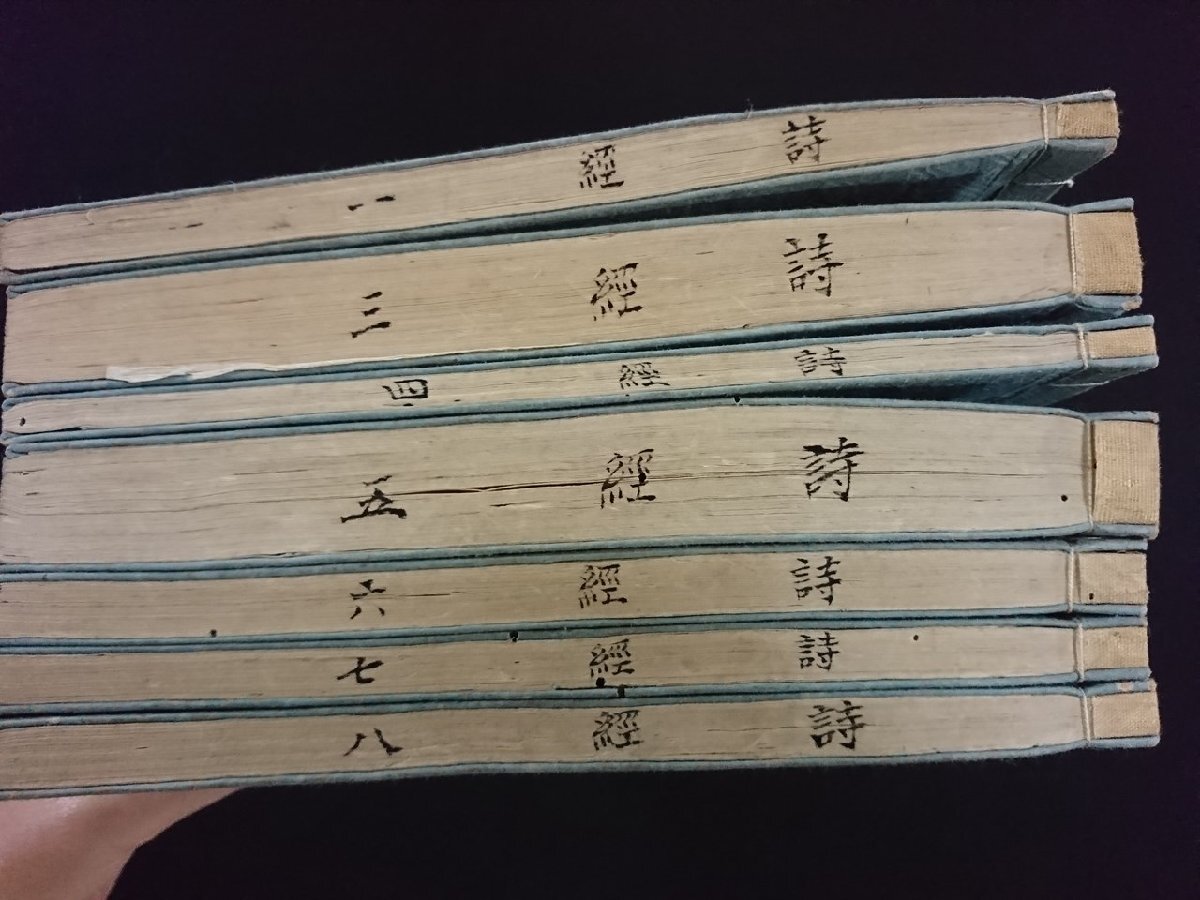 詩經 一
詩經 三
詩經 四
詩經 五
詩經 六
詩經 七
詩經 八